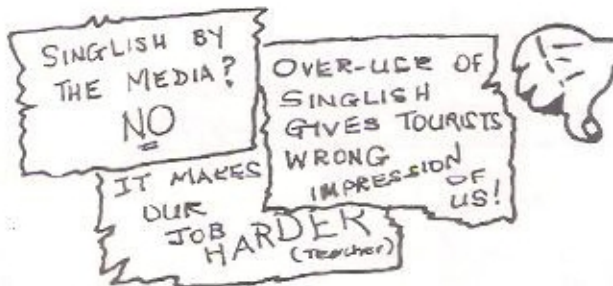 SINGLISH BY
THE MEDIA?
NO
OVER-USE OF
SINGLISH
GIVES TOURISTS
WRONG
IMPRESSION
OF
US!
IT MAKES
OUR
JOB
HARDER
(Teacher)